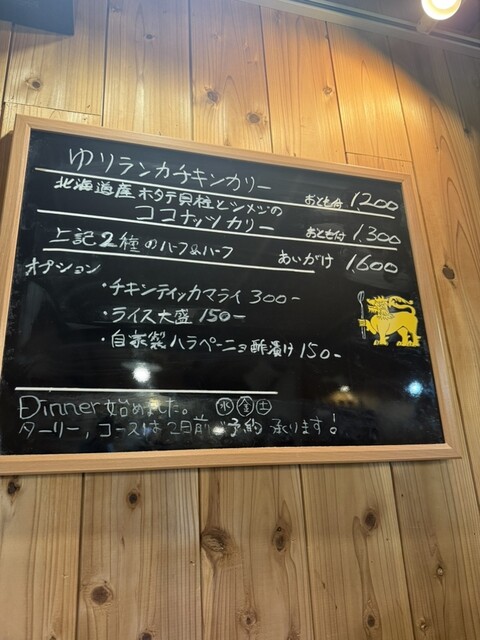 ゆりランカチキンカリー おとも付 1,200
北海道産ホタテ貝柱とシメジの
ココナッツカリー おとも付 1,300
上記2種のハーフ&ハーフ あいがけ 1,600
オプション
・チキンティッカマライ 300-
・ライス大盛 150-
・自家製ハラペーニョ酢漬け 150-
Dinner始めました。 水 金 土
ターリー, コースは2日前ご予約承ります!